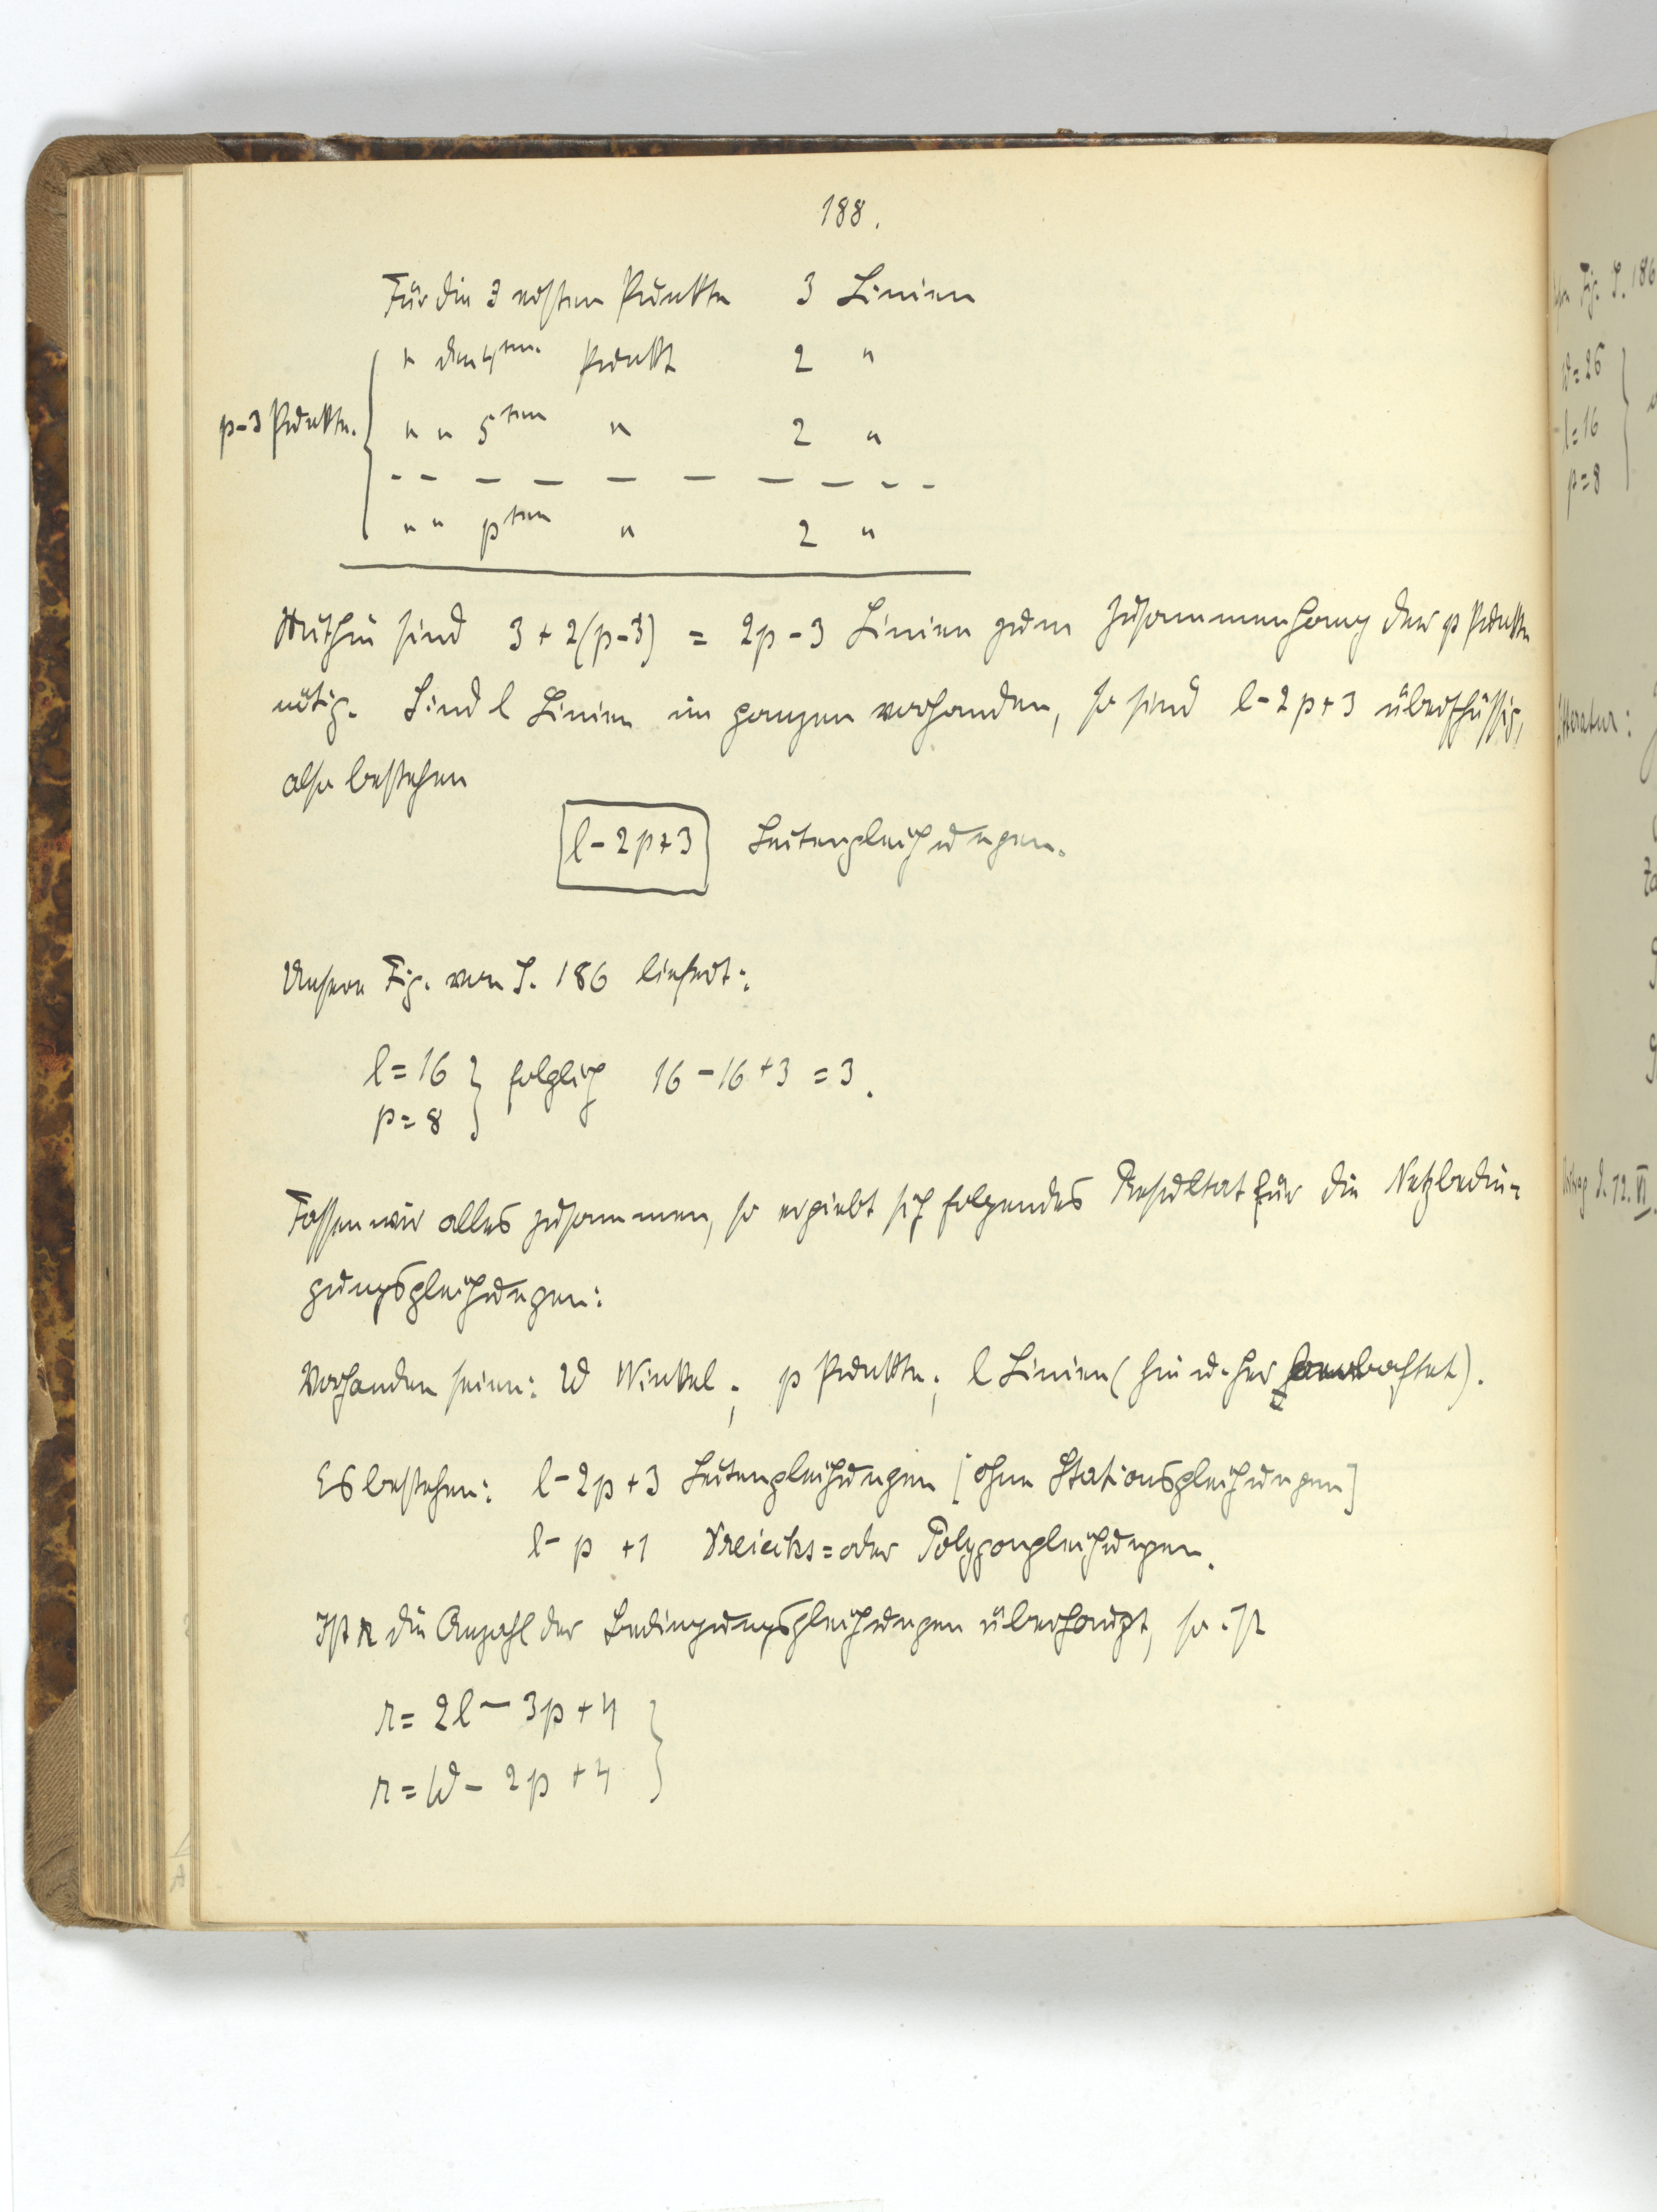 188.
Für die 3 ersten Punkte 3 Linien
" den 4ten. Punkt 2 "
p-3 Punkte. " " 5ten " 2 "
" " pten " 2 "
Mithin sind 3 + 2(p-3) = 2p - 3 Linien zum Zusammenhang der p Punkte
nötig. Sind l Linien im ganzen vorhanden, so sind l-2p+3 überschüssig,
also bestehen
l-2p+3 Seitengleichungen.
Unsere Fig. von S. 186 liefert:
l=16
p=8 } folglich 16-16+3 = 3.
Fassen wir alles zusammen, so ergiebt sich folgendes Resultat für die Netzbedin=
gungsgleichungen:
Vorhanden seien: W Winkel; p Punkte; l Linien (hin u. her beobachtet).
Es bestehen: l-2p+3 Seitengleichungen [ohne Stationsgleichungen]
l-p+1 Dreiecks= oder Polygongleichungen.
Ist r die Anzahl der Bedingungsgleichungen überhaupt, so ist
r = 2l - 3p + 4
r = W - 2p + 4 }
Fig. S. 186
W=26
l=16
p=8